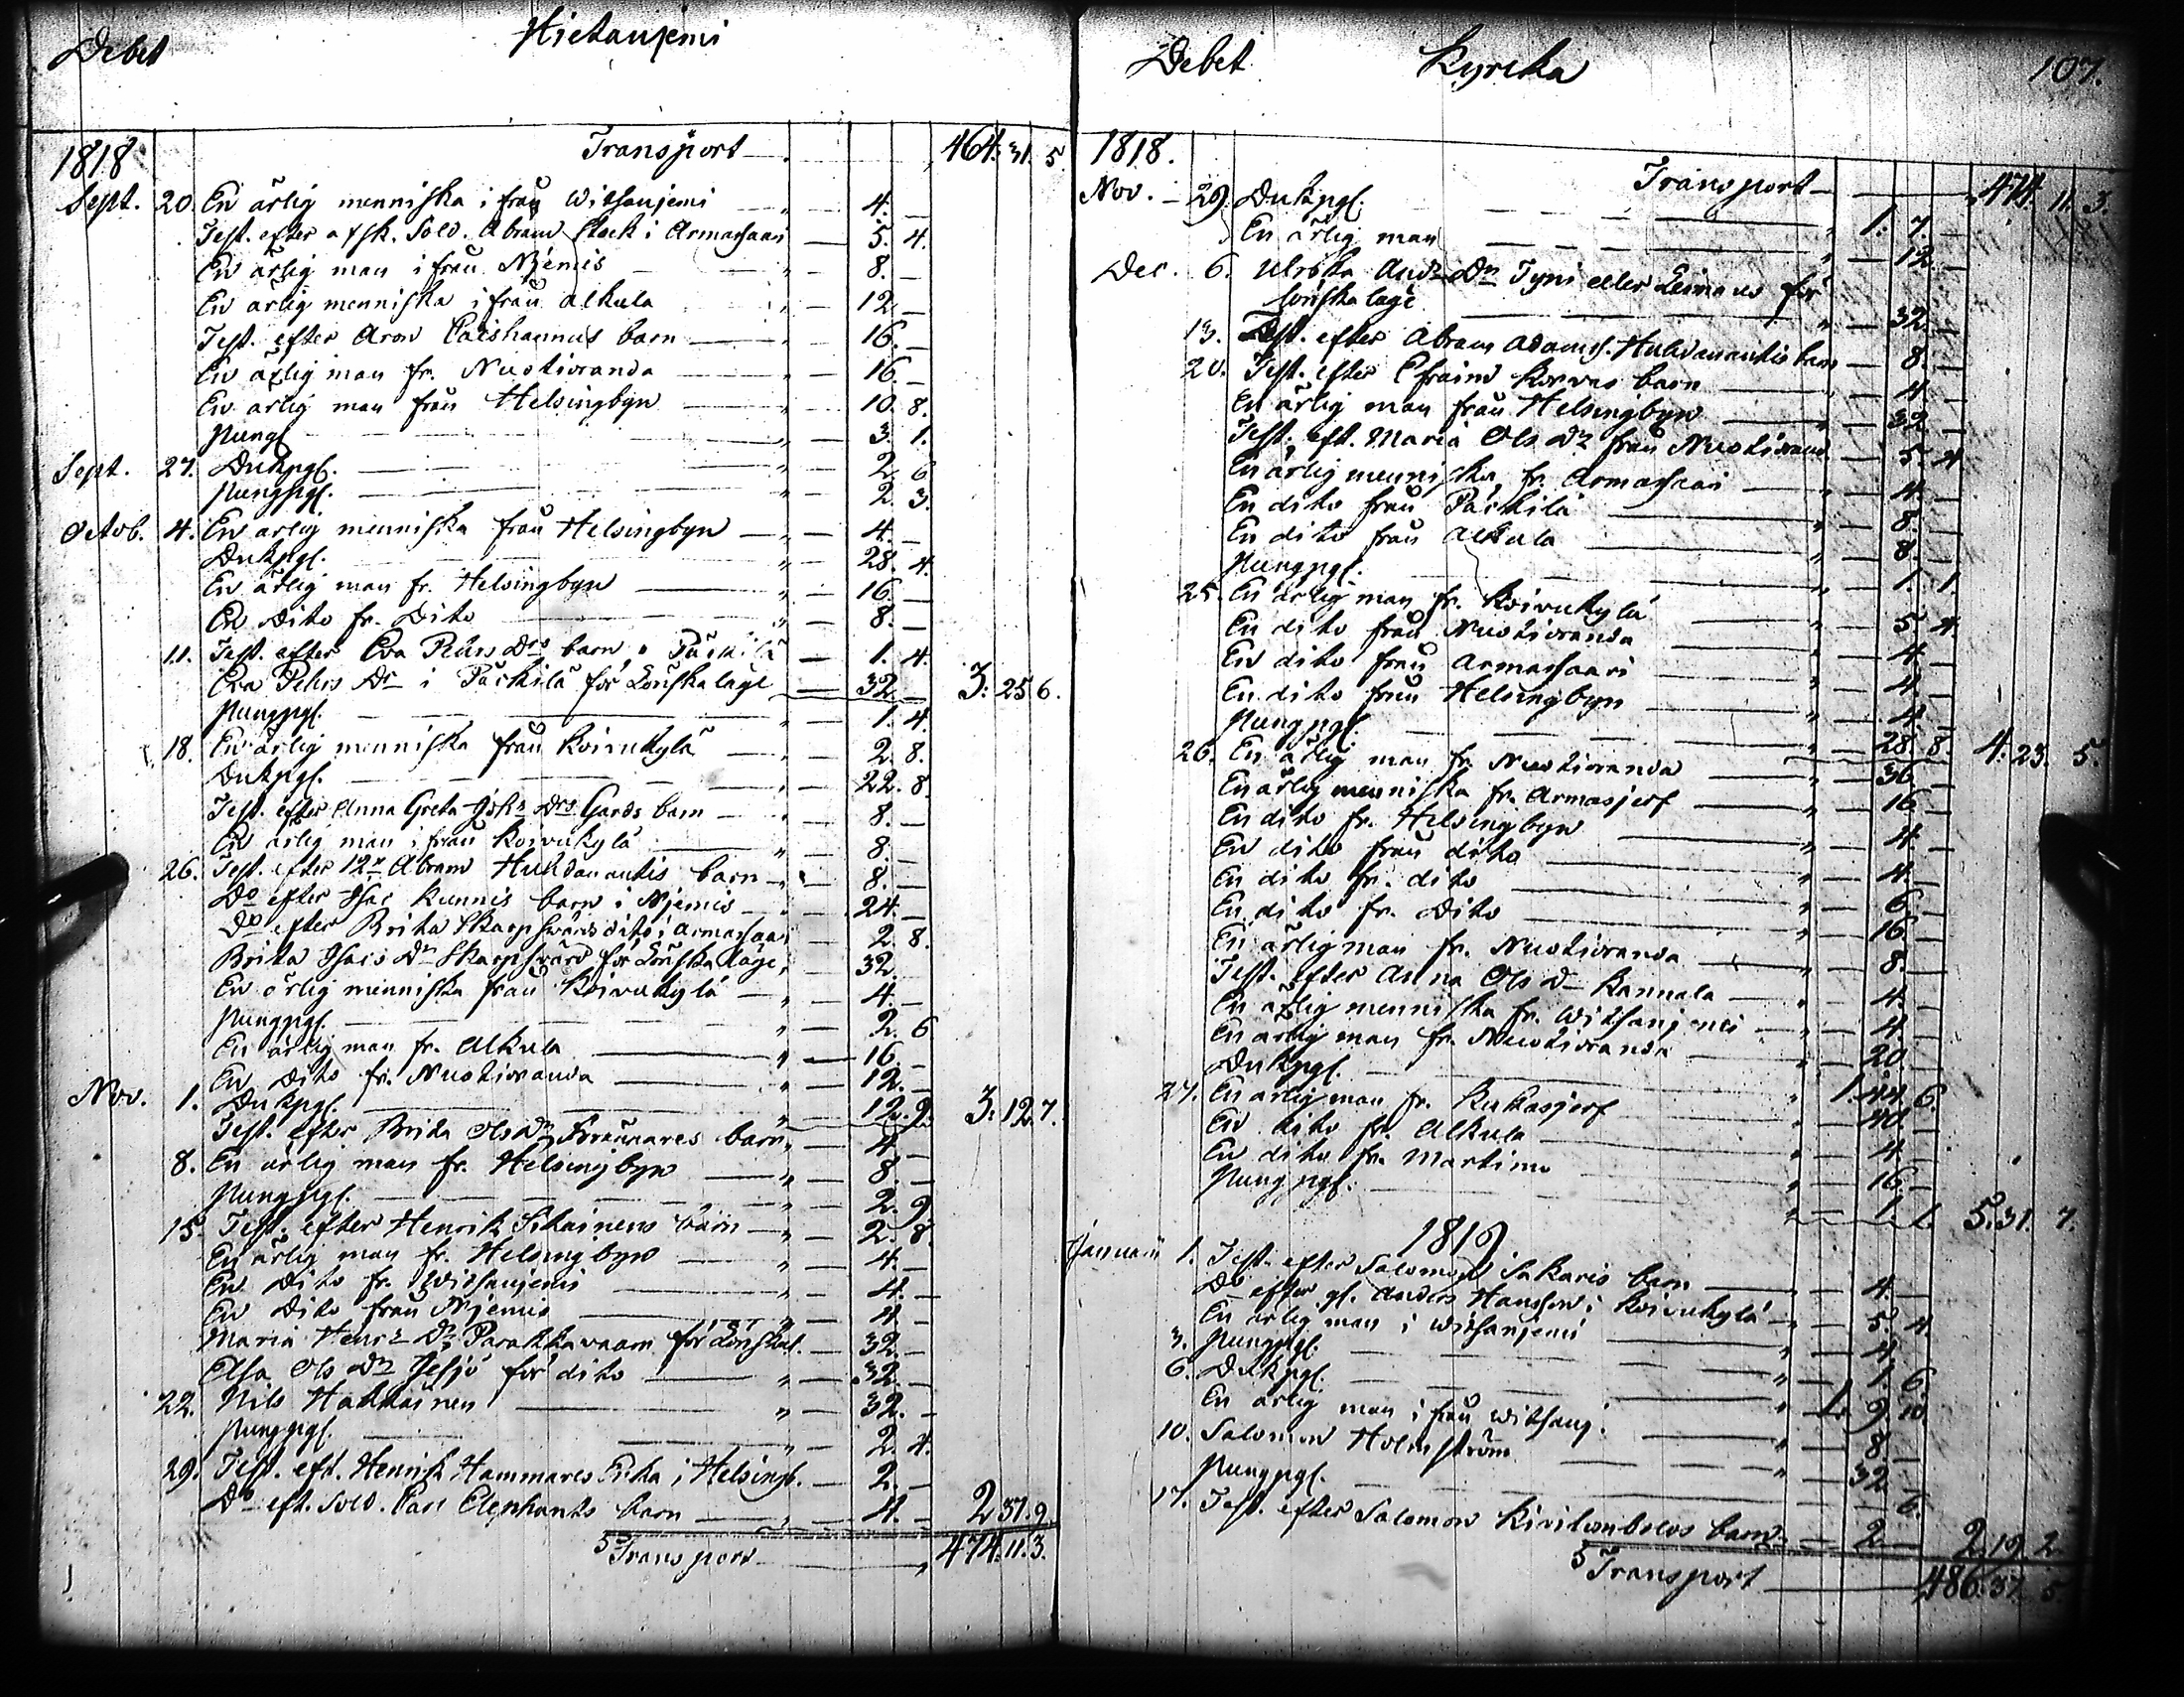 Debet Hietaniemi
1818 Transport 464. 31. 5
Sept. 20. En ärlig menniska ifrån Witsaniemi " — 4. —
Test. efter afsk. Sold. Abram Stock i Armassaari — 5. 4.
En ärlig man ifrån Njemis " — 8. —
En ärlig menniska ifrån Alkula " — 12. —
Test. efter Aron barn — 16. —
En ärlig man fr. Nuotioranda " — 16. —
En ärlig man från Helsingbyn " — 10. 8.
Pungp. " — 3. 1.
Sept. 27. Dukpgr. " — 2. 6
Pungpgr. " — 2. 3.
Octob. 4. En ärlig menniska från Helsingbyn " — 4. —
Dukpgr. " — 28. 4.
En ärlig man fr. Helsingbyn " — 16. —
En Dito fr. Dito " — 8. —
11. Test. efter Eva Pehrs Drs barn i Päckilä — 1. 4.
Eva Pehrs Dr i Päckilä för Lönskaläge — 32. — 3: 25 6.
Pungpgr. " — 1. 4.
18. En ärlig menniska från Koivukylä " — 2. 8.
Dukpgr. " — 22. 8.
Test. efter Anna Greta Johs Drs Gards barn — 8. —
En ärlig man ifrån Koivukylä " — 8. —
26. Test. efter Abram Huhdanantis barn " — 8. —
Do efter Isac Kunnis barn i Njemis " — 24. —
Do efter Brita Skarpsvärds dito i Armassaari 2. 8.
Brita Isacs Dr Skarpsvärd för Lönskaläge, 32. —
En ärlig menniska från Koivukylä " — 4. —
Pungpgr. " — 2. 6
En ärlig man fr. Alkula " — 16. —
En Dito fr. Nuotioranda " — 12. —
Nov. 1. Dukpgr. " — 12. 9. 3: 12 7.
Test. efter Brita Ols Dr barn " — 4. —
8. En ärlig man fr. Helsingbyn " — 8. —
Pungpgr. " — 2. 9
15. Test. efter Henrik Sikainens barn " — 2. 8.
En ärlig man fr. Helsingbyn " — 4. —
En Dito fr. Witsaniemi " — 4. —
En Dito från Njemis " — 4. —
Maria Henrs Dr Parakkavaara för Lönskal. — 32. —
Elsa Ols Dr Jesjö för dito " — 32. —
22. Nils Hakkainen " — 32. —
Pungpgr. " — 2. 4.
29. Test. eft. Henrik Hammares Enka i Helsingb. — 2. —
Do eft. Sold. Carl Elephants barn " — 4. — 2 37. 9.
Transport " 474. 11. 3.
Debet Kyrcka 107.
1818.
Transport 474. 11. 3.
Nov. 29. Dukpgr. " 1. 7. —
En ärlig man " — 12 —
Dec. 6. Ulrika Ands Dr Tyni eller för
lönskaläge " — 32. —
13. Test. efter Abram Adams. Huhdanantis barn — 8. —
20. Test. efter Efraim Korvas barn " — 4 —
En ärlig man från Helsingbyn " — 32 —
Test. eft. Maria Ols Dr från Nuotiorand. — 5. 4
En ärlig menniska fr. Armassaari " — 4. —
En dito från Päckilä " — 8. —
En dito från Alkula " — 8. —
Pungpgr. " — 1. 1.
25. En ärlig man fr. Koivukylä " — 5. 4
En dito från Nuotioranda " — 4. —
En dito från Armassaari " — 4. —
En dito från Helsingbyn " — 4. —
Pungpgr. " — 28. 8. 4: 23. 5.
26. En ärlig man fr. Nuotioranda " — 36 —
En ärlig menniska fr. Armasjerf " — 16. —
En dito fr. Helsingbyn " — 4. —
En dito från dito " — 4. —
En dito fr. dito " — 6 —
En dito fr. Dito " — 16. —
En ärlig man fr. Nuotioranda " — 8. —
Test. efter Anna Ols Dr Kannala " — 4. —
En ärlig menniska fr. Witsaniemi " — 4. —
En ärlig man fr. Nuotioranda " — 20. —
Dukpgr. " 1. 44. 6.
27. En ärlig man fr. Kukasjerf " — 40. —
En dito fr. Alkula " — 4. —
En dito fr. Martimo " — 16. —
Pungpgr. " — 1. 1. 5. 31. 7.
1819
Januarii 1. Test. efter Salomon Sakaris barn — 4. —
Do efter gl. Anders Hansson i Koivukylä — 5. 4.
En ärlig man i Witsaniemi " — 4. —
3. Pungpgr. " — 1. 6.
6. Dukpgr. " 1. 9. 10
En ärlig man ifrån Witsanj. " — 8 —
10. Salomon Holmström " — 32 —
Pungpgr. — 6.
17. Test. efter Salomon barn — 2. — 2. 19. 2
Transport 486. 37. 5.